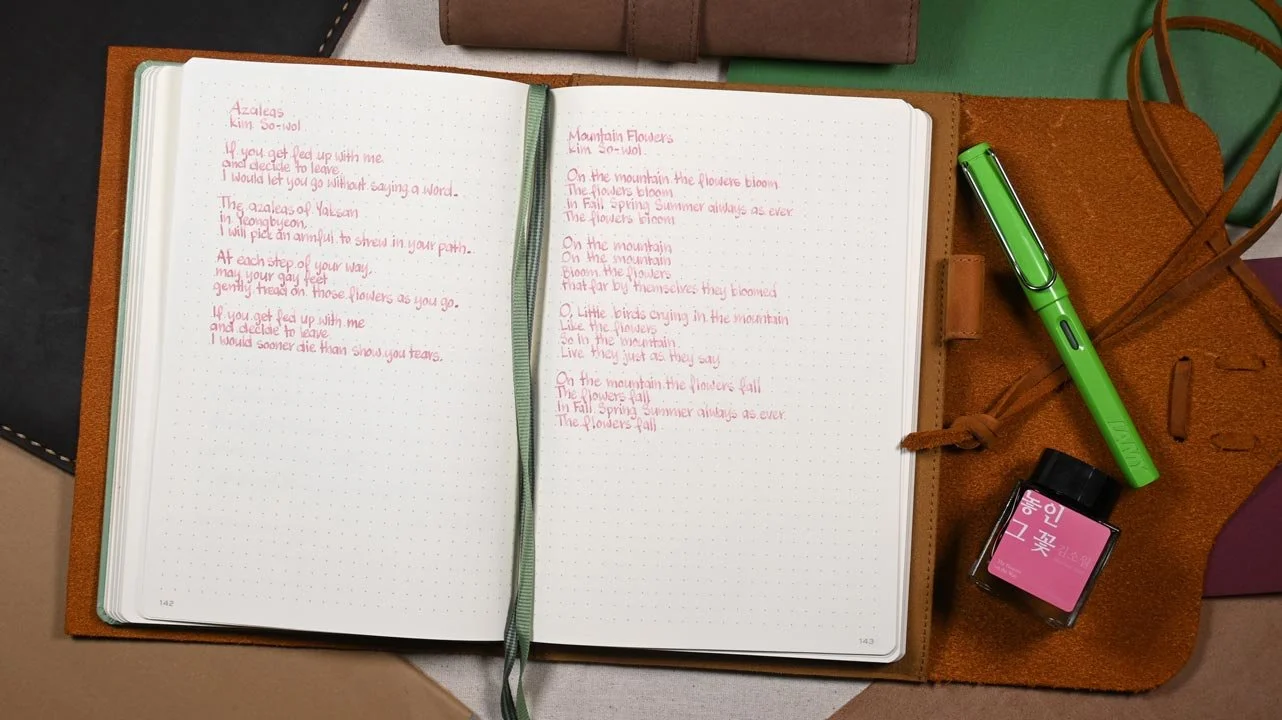 Azaleas
Kim So-wol
If you get fed up with me
and decide to leave
I would let you go without saying a word.
The azaleas of Yaksan
in Yeongbyeon,
I will pick an armful to strew in your path.
At each step of your way,
may your gay feet
gently tread on those flowers as you go.
If you get fed up with me
and decide to leave
I would sooner die than show you tears.
142
Mountain Flowers
Kim So-wol
On the mountain the flowers bloom
The flowers bloom
in Fall Spring Summer always as ever
The flowers bloom
On the mountain
On the mountain
Bloom the flowers
that far by themselves they bloomed
O, Little birds crying in the mountain
Like the flowers
So in the mountain
Live they just as they say
On the mountain the flowers fall
The flowers fall
in Fall Spring Summer always as ever
The flowers fall
143
LAMY
놓인
그 꽃
김소월